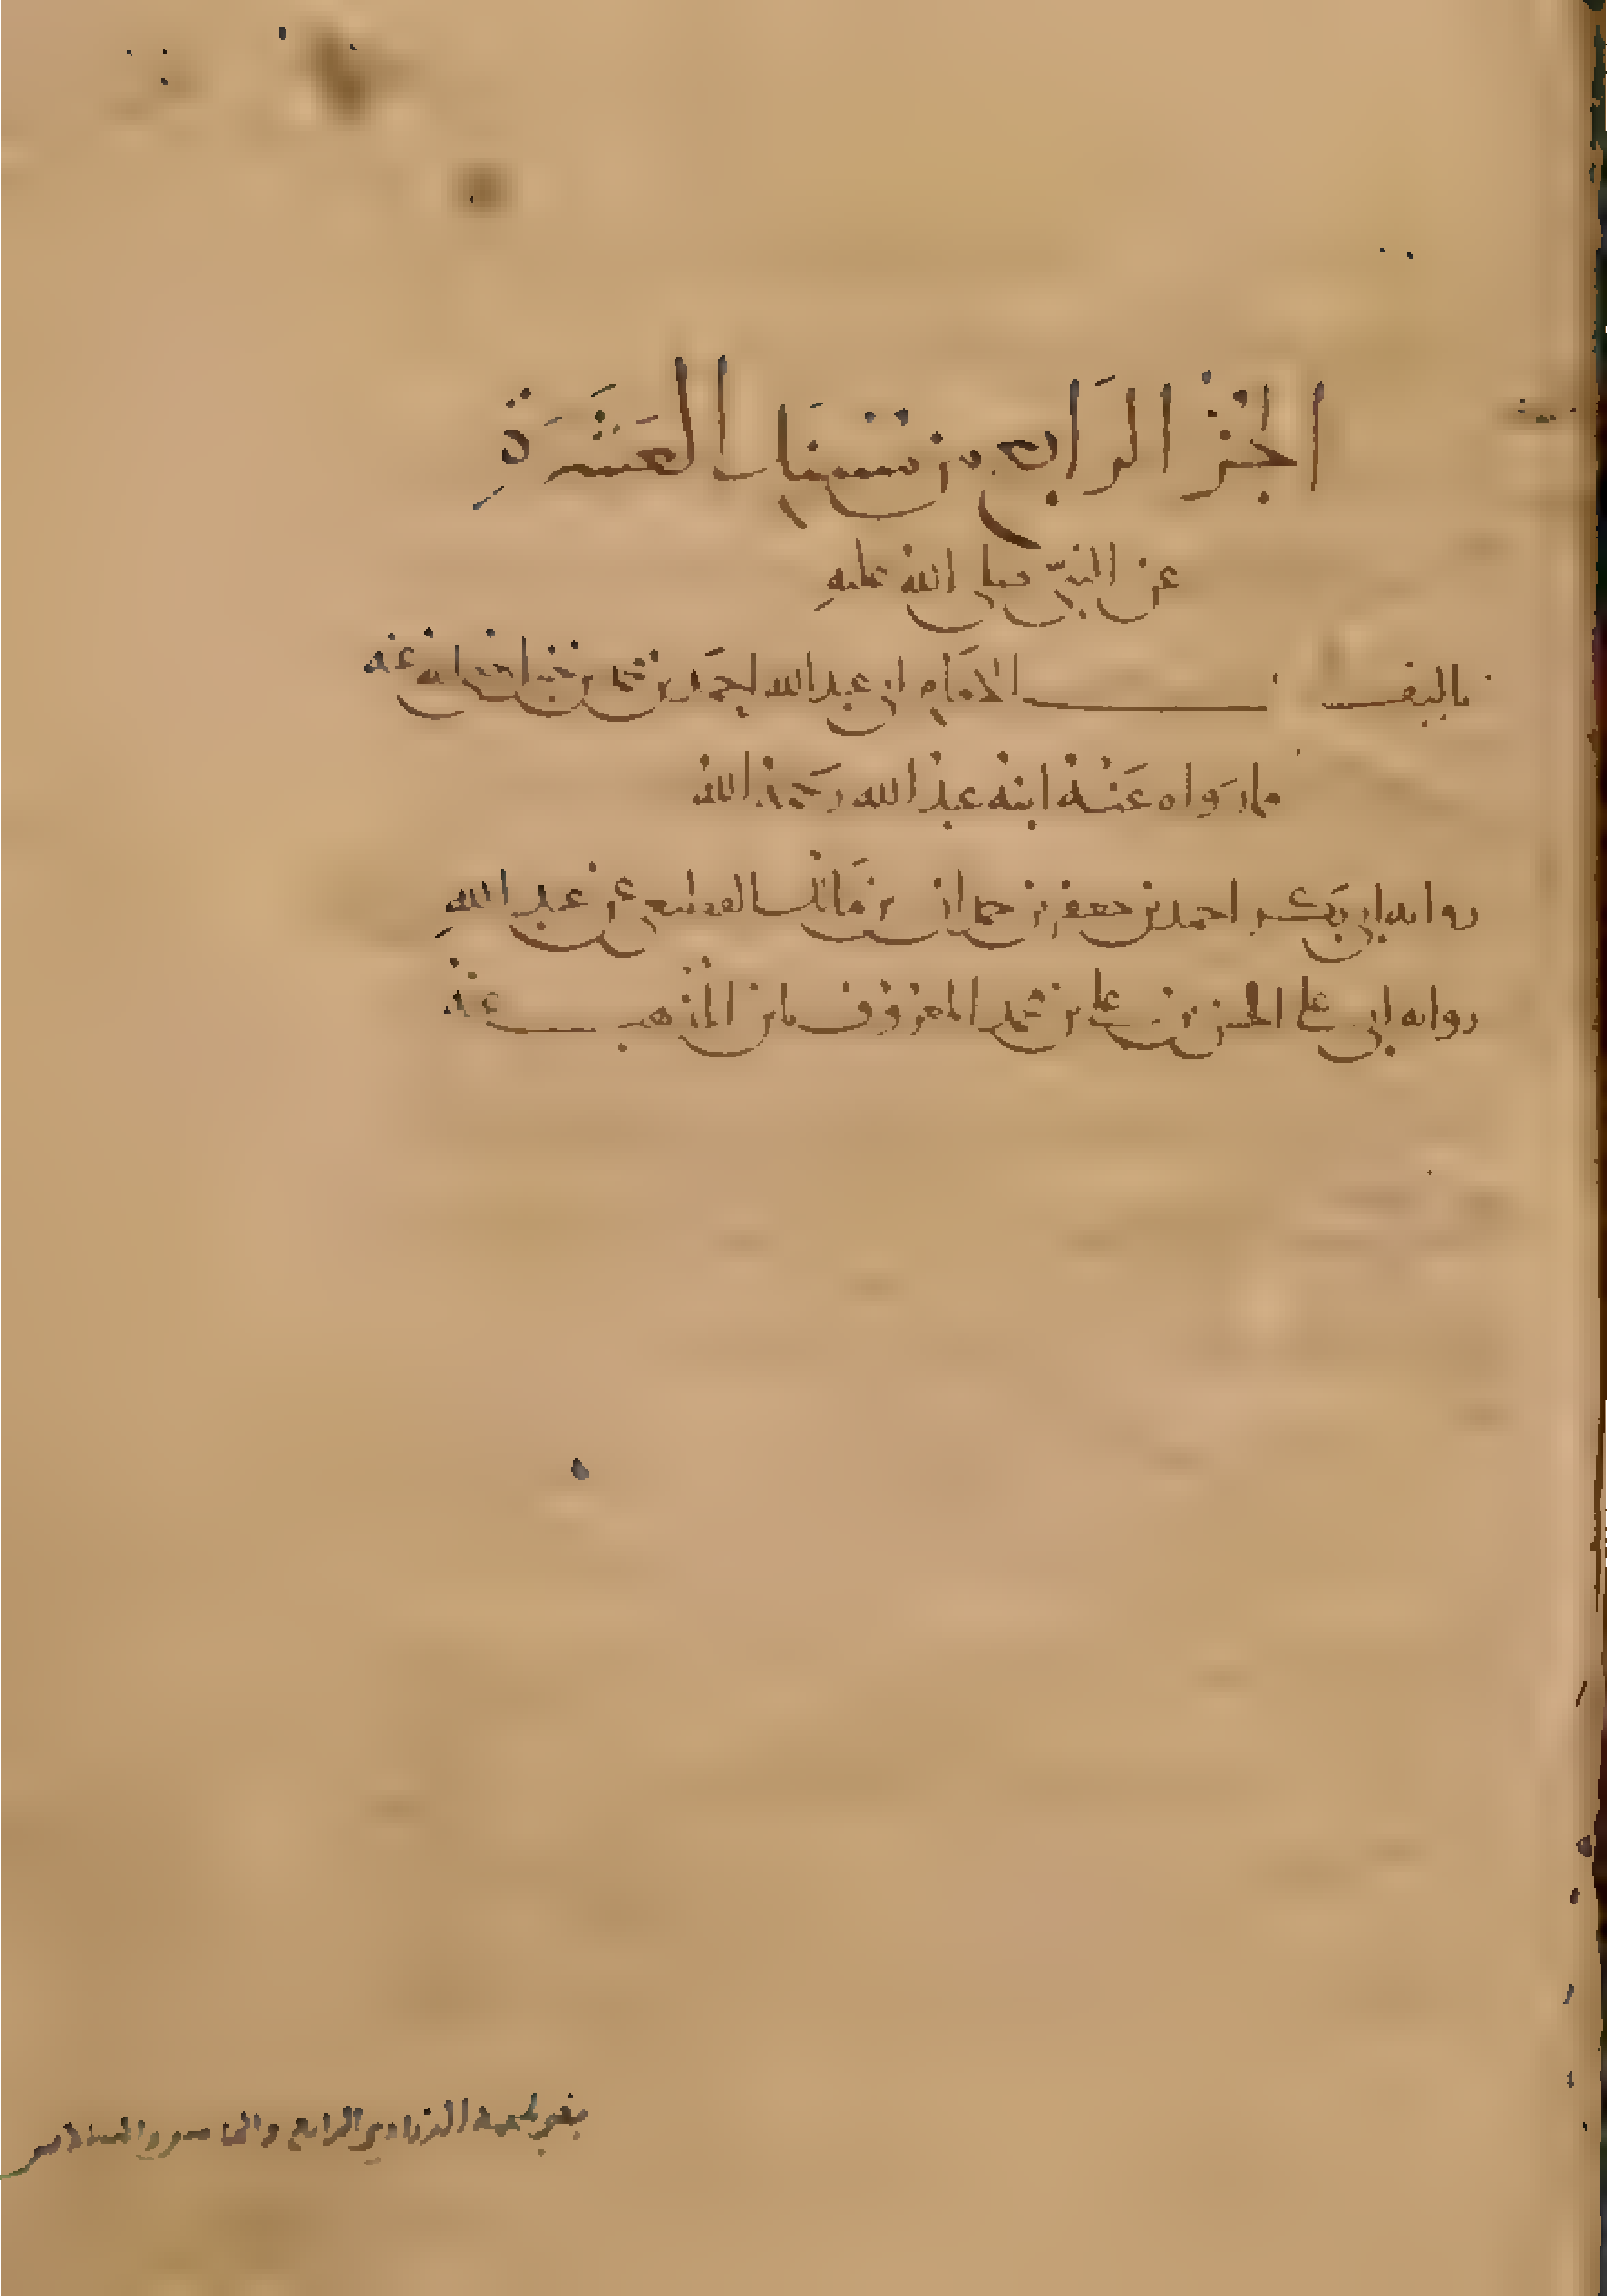 الجُزْءُ الرَّابِع من مُسْنَدِ العَشَرَةِ
عن النبيّ صلى اللهُ عليهِ
تاليف الامَامِ ابي عبد الله احمَد بن محمد بن حنبل رضي الله عَنْهُ
ما رَوَاه عَنْهُ ابنهُ عبدُ الله رَحمَهُ اللهُ
روايه ابي بَكر احمد بن جعفر بن حمدان بن مَالك القطيعي عن عبد اللهِ
روايه ابي علي الحسن بن علي بن محمد المعرُوف بابن المُذْهِب عَنْهُ
الرابع والخامس والسادس